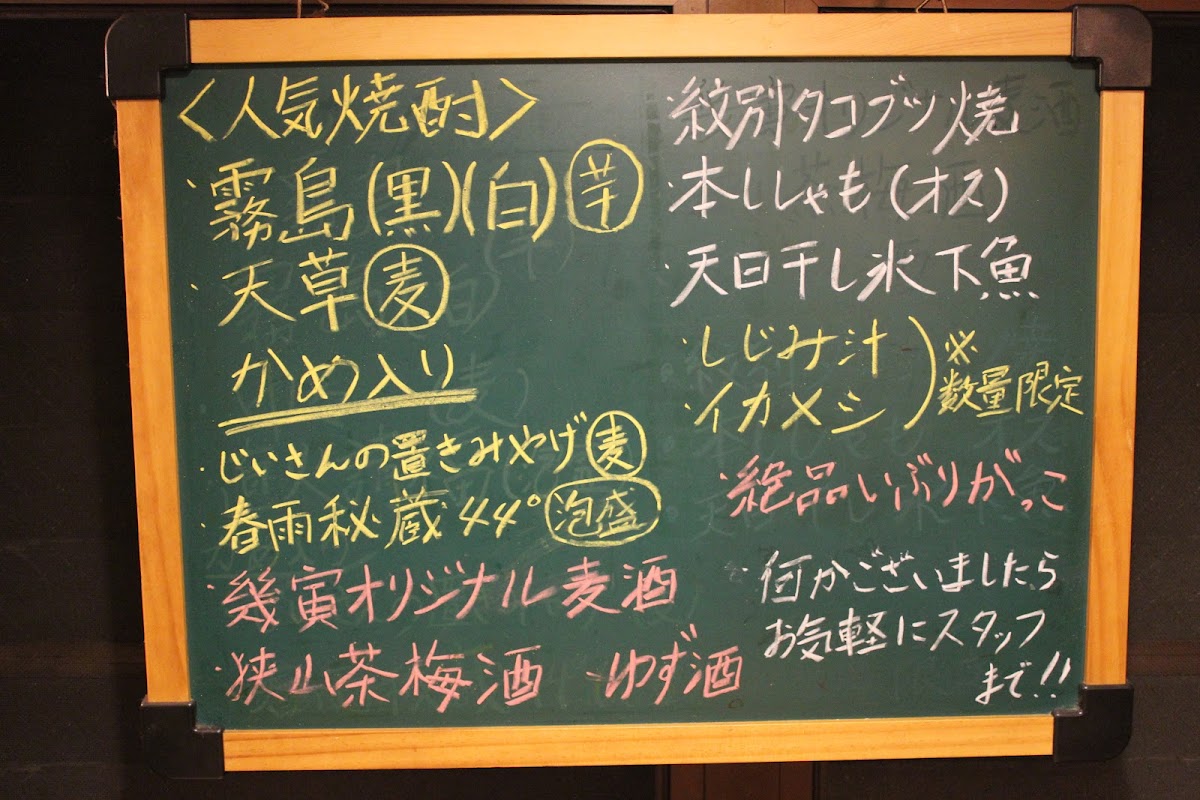 <人気焼酎>
・霧島(黒)(白)芋
・天草麦
かめ入り
・じいさんの置きみやげ麦
・春雨秘蔵44°泡盛
・幾寅オリジナル麦酒
・狭山茶梅酒 ゆず酒
・紋別タコブツ焼
・本ししゃも(オス)
・天日干し氷下魚
・しじみ汁
・イカメシ
※
数量限定
・絶品のいぶりがっこ
・何かございましたら
お気軽にスタッフ
まで!!